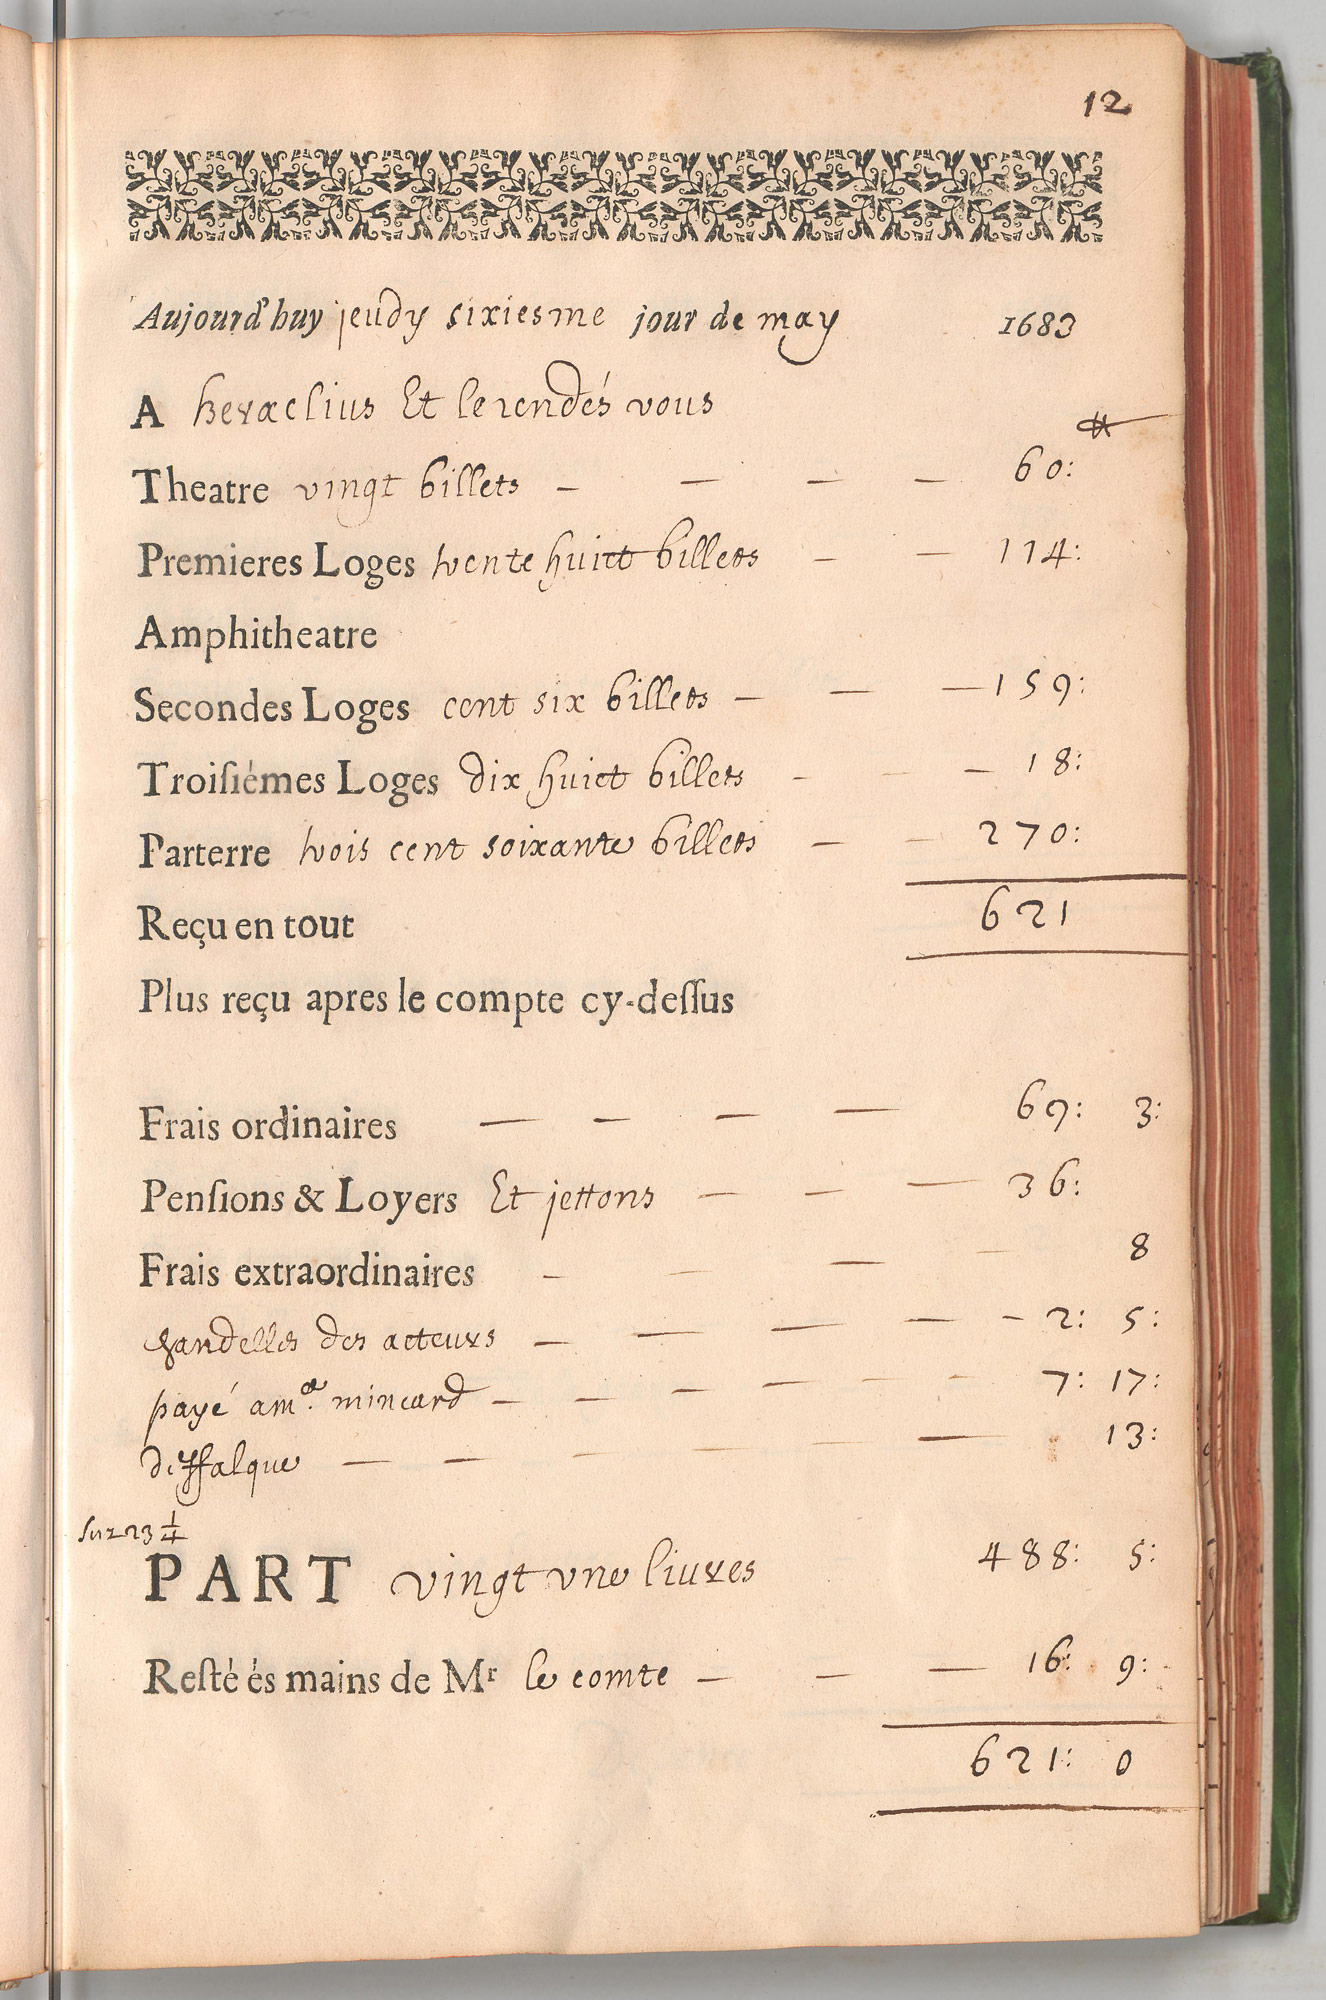 12
Aujourd'huy jeudy sixiesme jour de may 1683
A heraclius Et le rendés vous ₶
Theatre vingt billets — — — — 60:
Premieres Loges trente huict billets — — 114:
Amphitheatre
Secondes Loges cent six billets — — — 159:
Troisiémes Loges dix huict billets — — — 18:
Parterre trois cent soixante billets — — 270:
Reçu en tout 621
Plus reçu apres le compte cy-dessus
Frais ordinaires — — — — 69: 3:
Pensions & Loyers Et jettons — — — 36:
Frais extraordinaires — — — — 8
chandelles des acteurs — — — — — 2: 5:
payé a mr. mincard — — — — — — 7: 17:
deffalque — — — — — — 13:
sur 23 1/4
PART vingt une liures 488: 5:
Resté és mains de Mr le comte — — — 16: 9:
621: 0